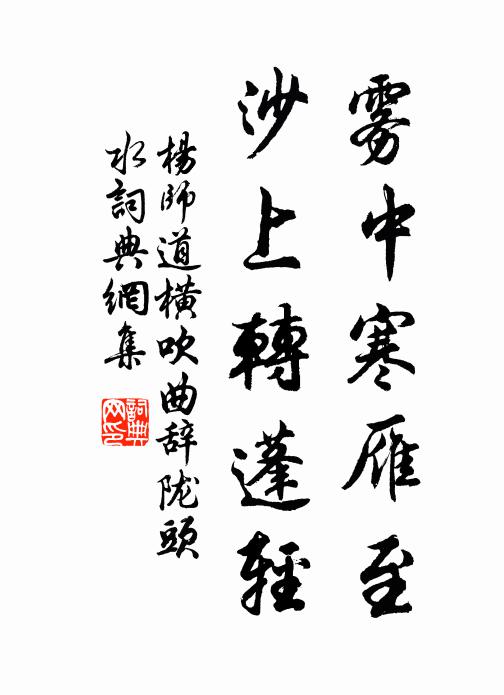 雾中寒雁至
沙上轉蓬輕
楊師道橫吹曲辞陇頭
水詞典網集
詞典
网印